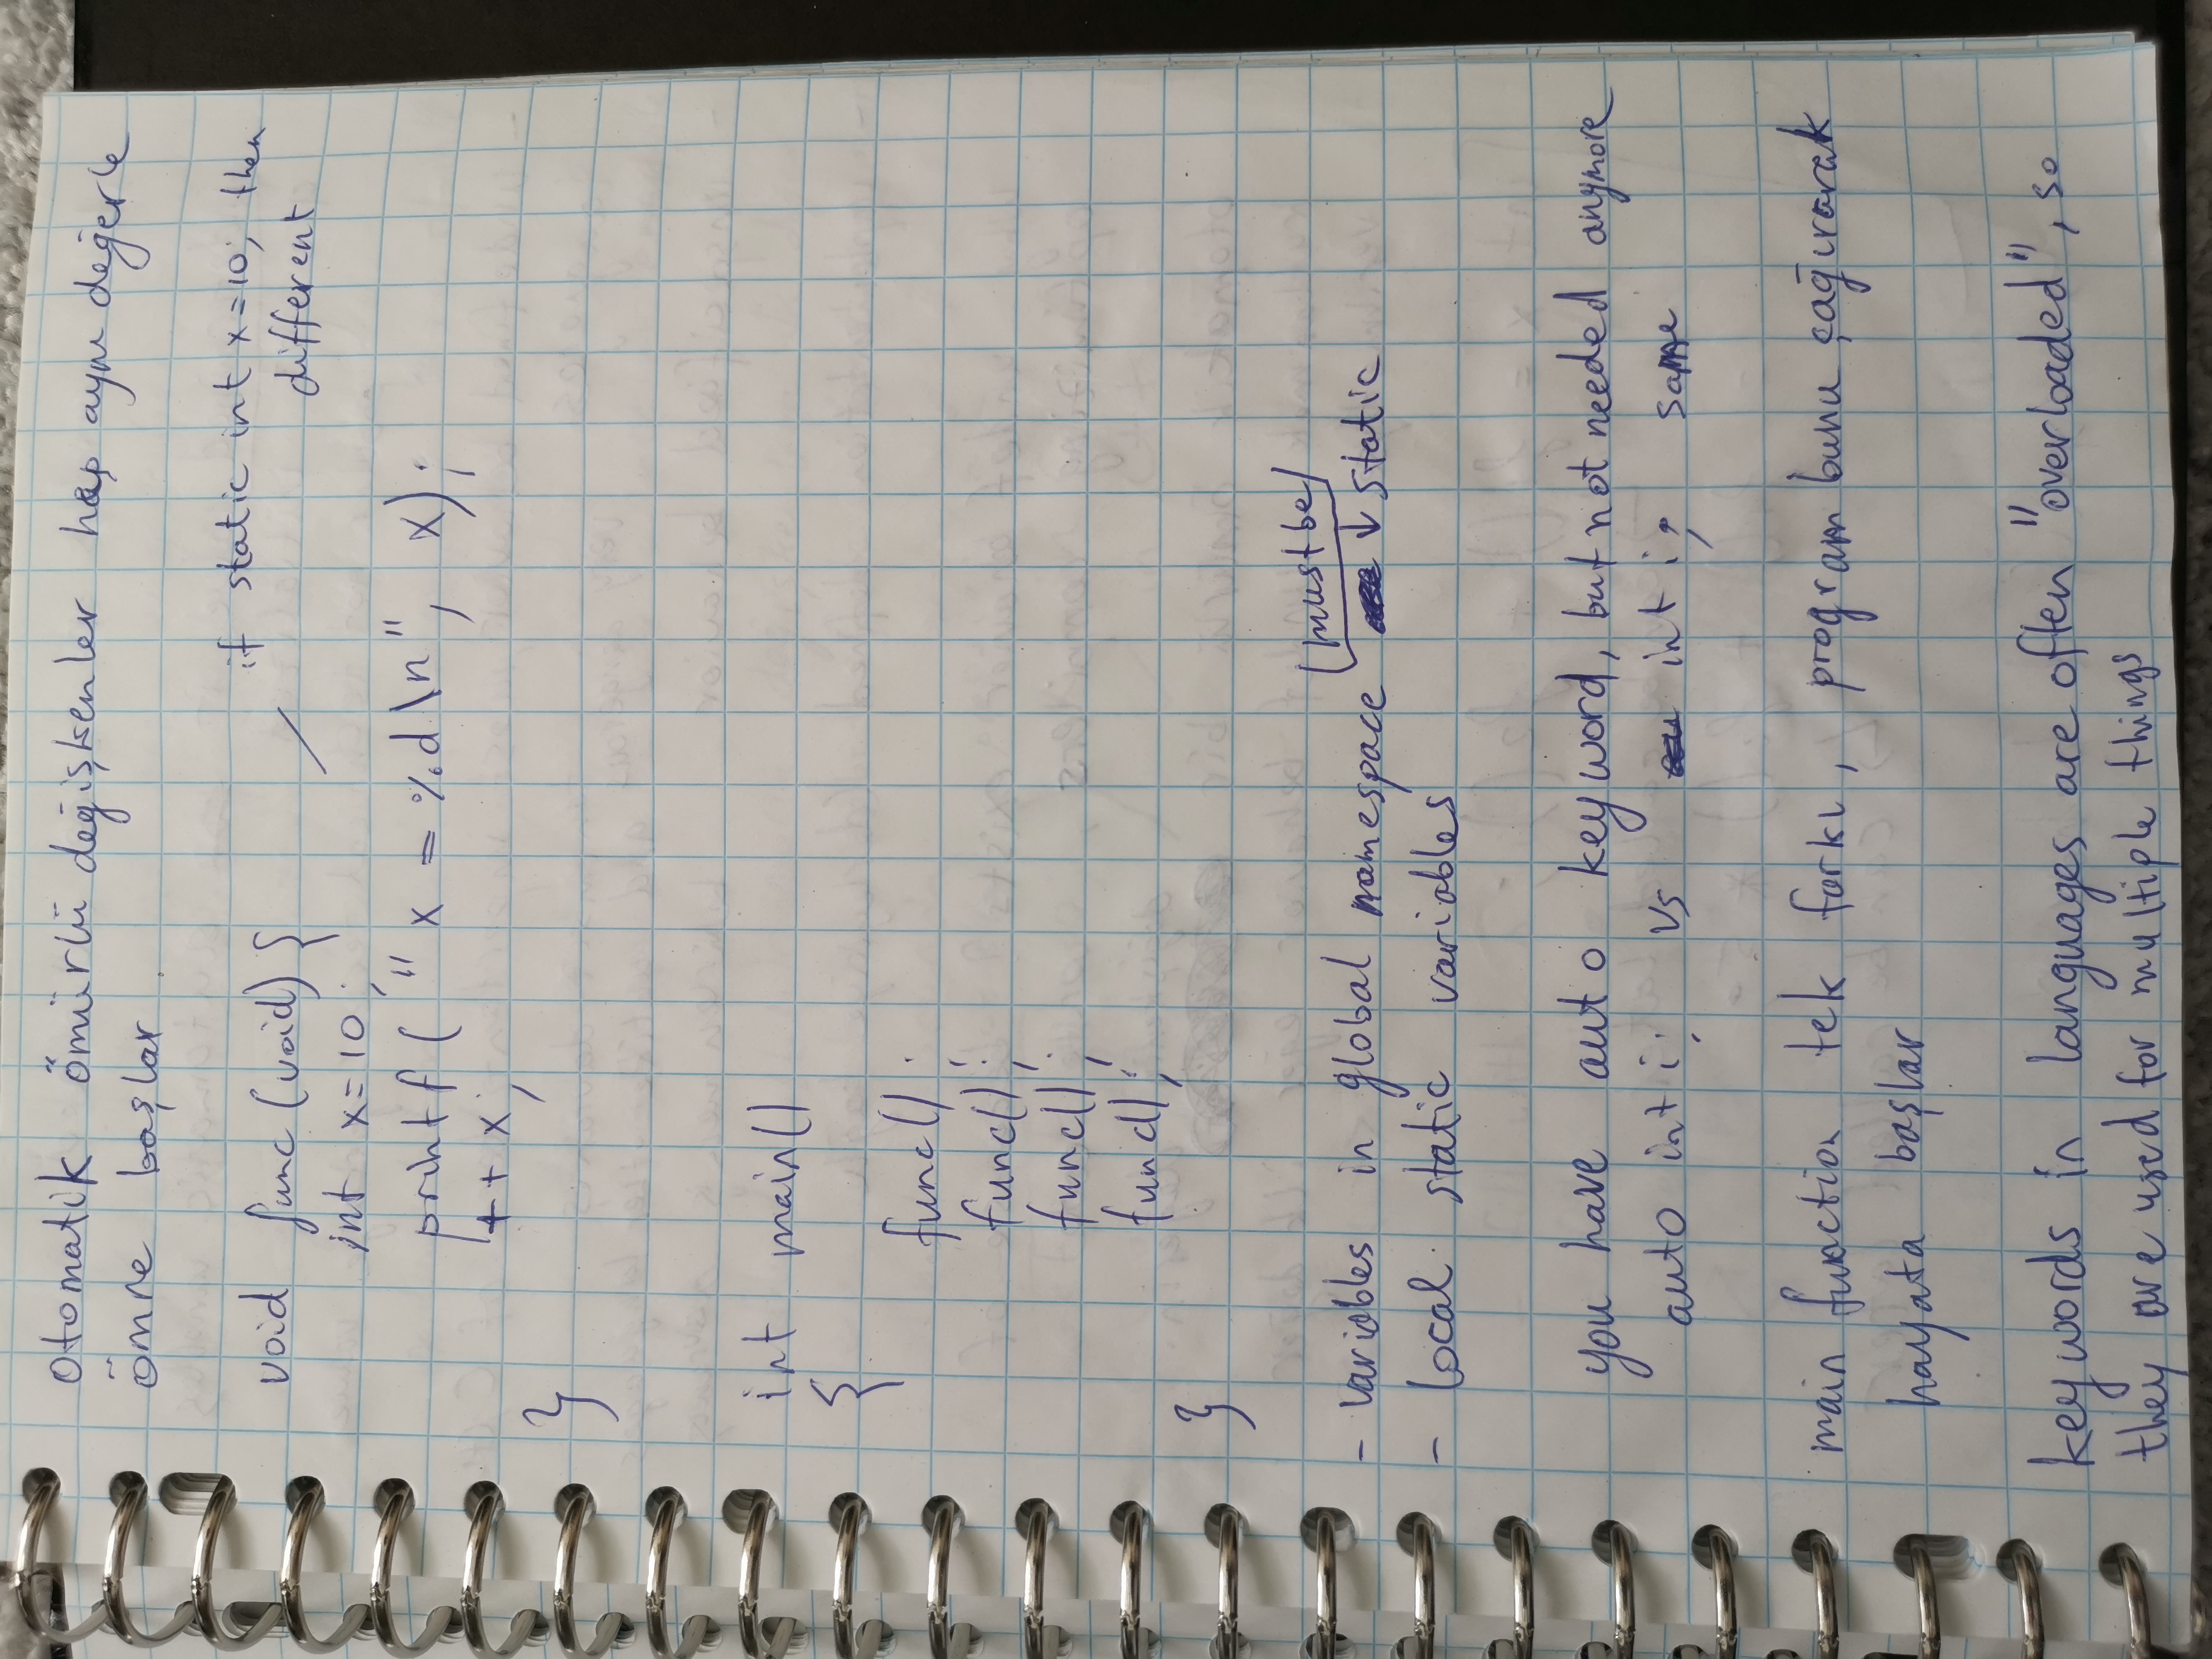 otomatik ömürlü değişkenler hep aynı değerle
ömre başlar.
if static int x=10; then
different
void func(void){
int x=10;
printf("x = %d\n", x);
++x;
}
int main()
{
func();
func();
func();
func();
}
(must be)
- variables in global namespace ↓ static
- local static variables
you have auto keyword, but not needed anymore
auto int i; vs int i; same
main function tek farkı, program bunu çağırarak
hayata başlar
keywords in languages are often "overloaded", so
they are used for multiple things